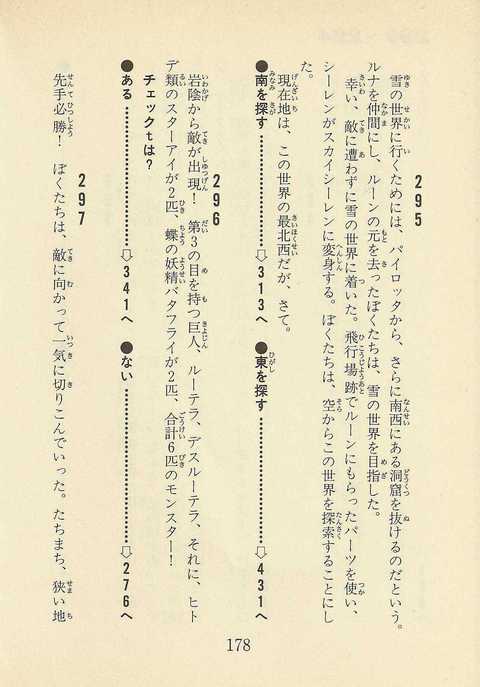 295
雪の世界に行くためには、バイロッタから、さらに南西にある洞窟を抜けるのだという。
ルナを仲間にし、ルーンの元を去ったぼくたちは、雪の世界を目指した。
幸い、敵に遭わずに雪の世界に着いた。飛行場跡でルーンにもらったパーツを使い、
シーレンがスカイシーレンに変身する。ぼくたちは、空からこの世界を探索することにし
た。
現在地は、この世界の最北西だが、さて。
●南を探す……⇨313へ ●東を探す……⇨431へ
296
岩陰から敵が出現! 第3の目を持つ巨人、ルーテラ、デスルーテラ、それに、ヒト
デ類のスターアイが2匹、蝶の妖精バタフライが2匹、合計6匹のモンスター!
チェックtは?
●ある……⇨341へ ●ない……⇨276へ
297
先手必勝! ぼくたちは、敵に向かって一気に切りこんでいった。たちまち、狭い地
178